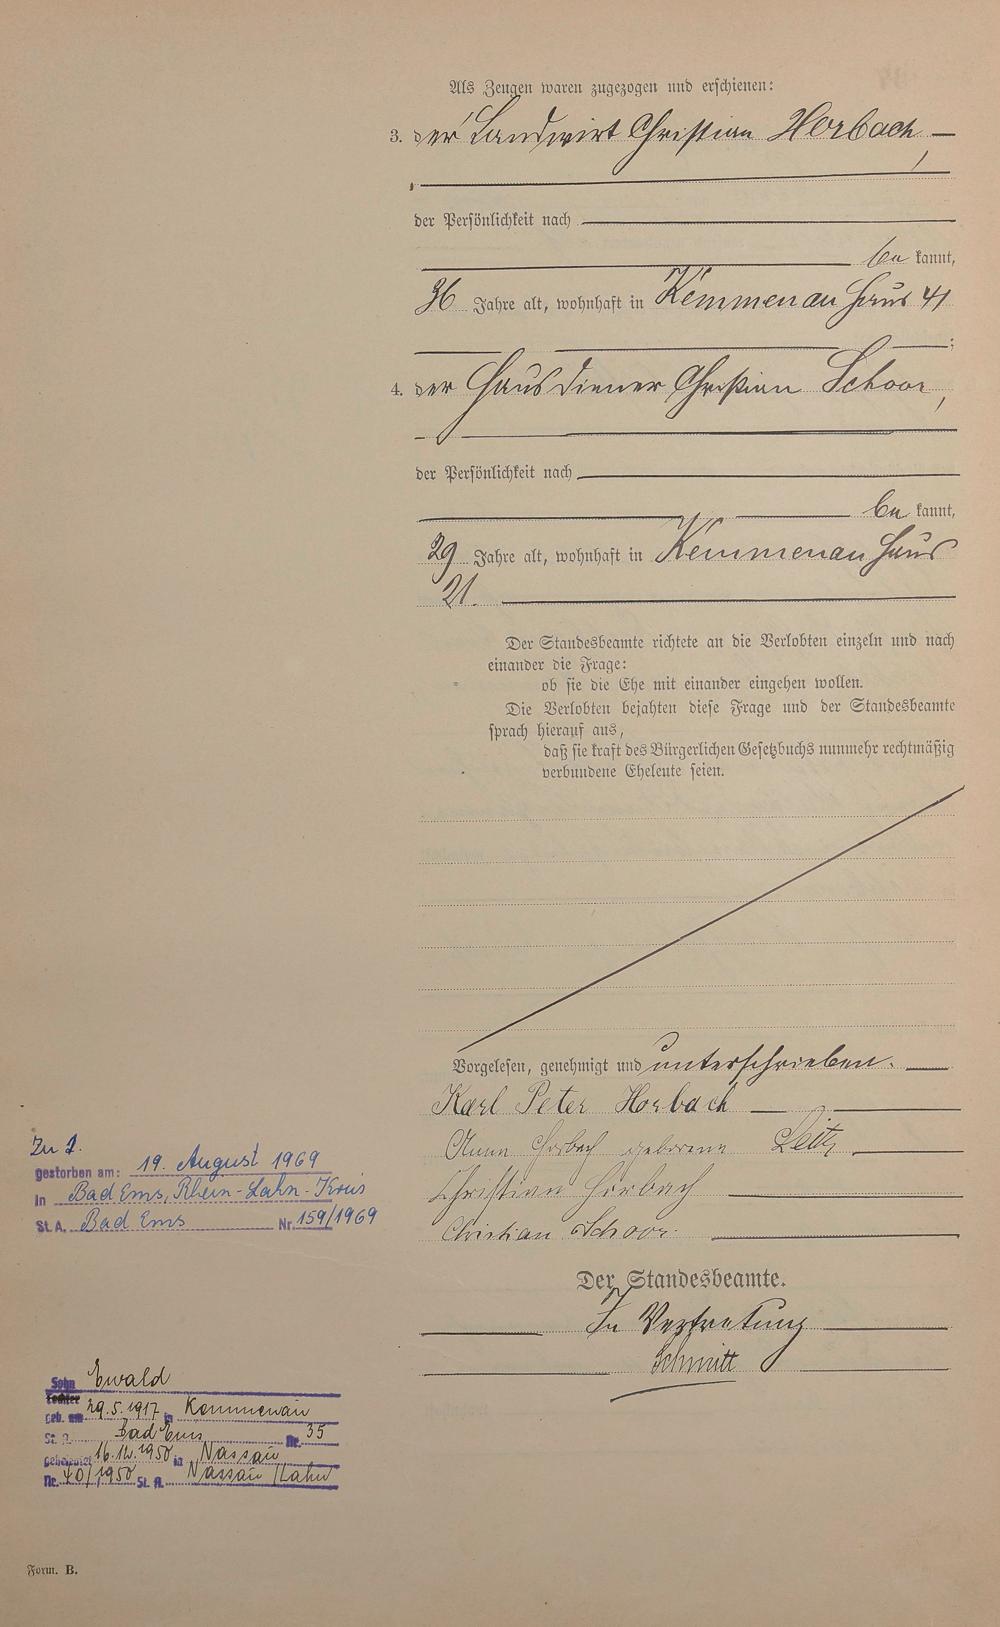 Als Zeugen waren zugezogen und erschienen:
3. der Landwirt Christian Horbach
,
der Persönlichkeit nach
be kannt,
36 Jahre alt, wohnhaft in Kemmenau Haus 41
;
4. der Hausdiener Christian Schoor,
der Persönlichkeit nach
be kannt,
29 Jahre alt, wohnhaft in Kemmenau Haus
21.
Der Standesbeamte richtete an die Verlobten einzeln und nach
einander die Frage:
ob sie die Ehe mit einander eingehen wollen.
Die Verlobten bejahten diese Frage und der Standesbeamte
sprach hierauf aus,
daß sie kraft des Bürgerlichen Gesetzbuchs nunmehr rechtmäßig
verbundene Eheleute seien.
Vorgelesen, genehmigt und unterschrieben.
Karl Peter Horbach
Anna Horbach geborene Leitz
Christian Horbach
Christian Schoor.
Der Standesbeamte.
In Vertretung
Schmitt
Zu 2.
gestorben am: 19. August 1969
in Bad Ems, Rhein-Lahn-Kreis
St.A. Bad Ems Nr. 159/1969
Sohn Ewald
Tochter
geb. am 29.5.1917 in Kemmenau
St. A. Bad Ems Nr. 35
geheiratet 16.12.1950 in Nassau
Nr. 40/1950 St. A. Nassau/Lahn
Form. B.